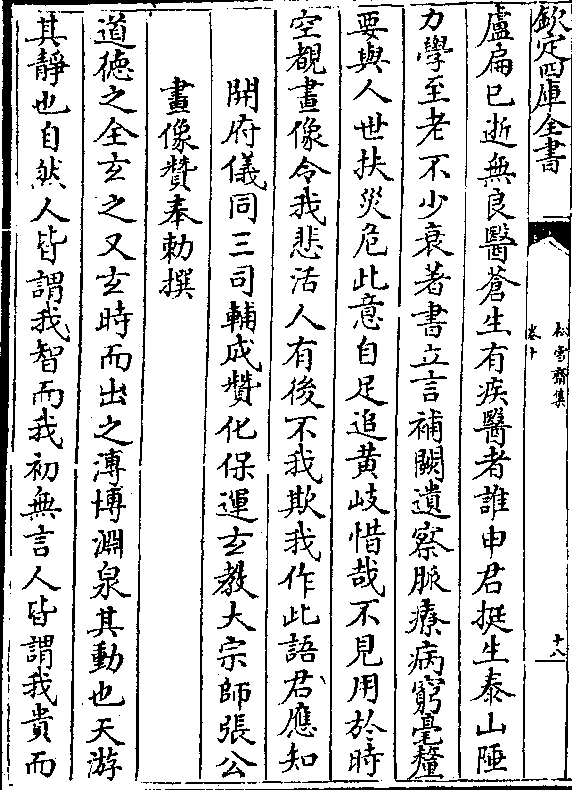 欽定四庫全書
松雪齋集
卷十
十八
盧扁已逝無良醫蒼生有疾醫者誰申君挺生泰山陲
力學至老不少衰著書立言補闕遺察脈療病窮毫釐
要與人世扶災危此意自足追黄岐惜哉不見用於時
空覩畫像令我悲活人有後不我欺我作此語君應知
開府儀同三司輔成贊化保運玄教大宗師張公
畫像贊奉勅撰
道徳之全玄之又玄時而出之溥博淵泉其動也天游
其靜也自然人皆謂我智而我初無言人皆謂我貴而